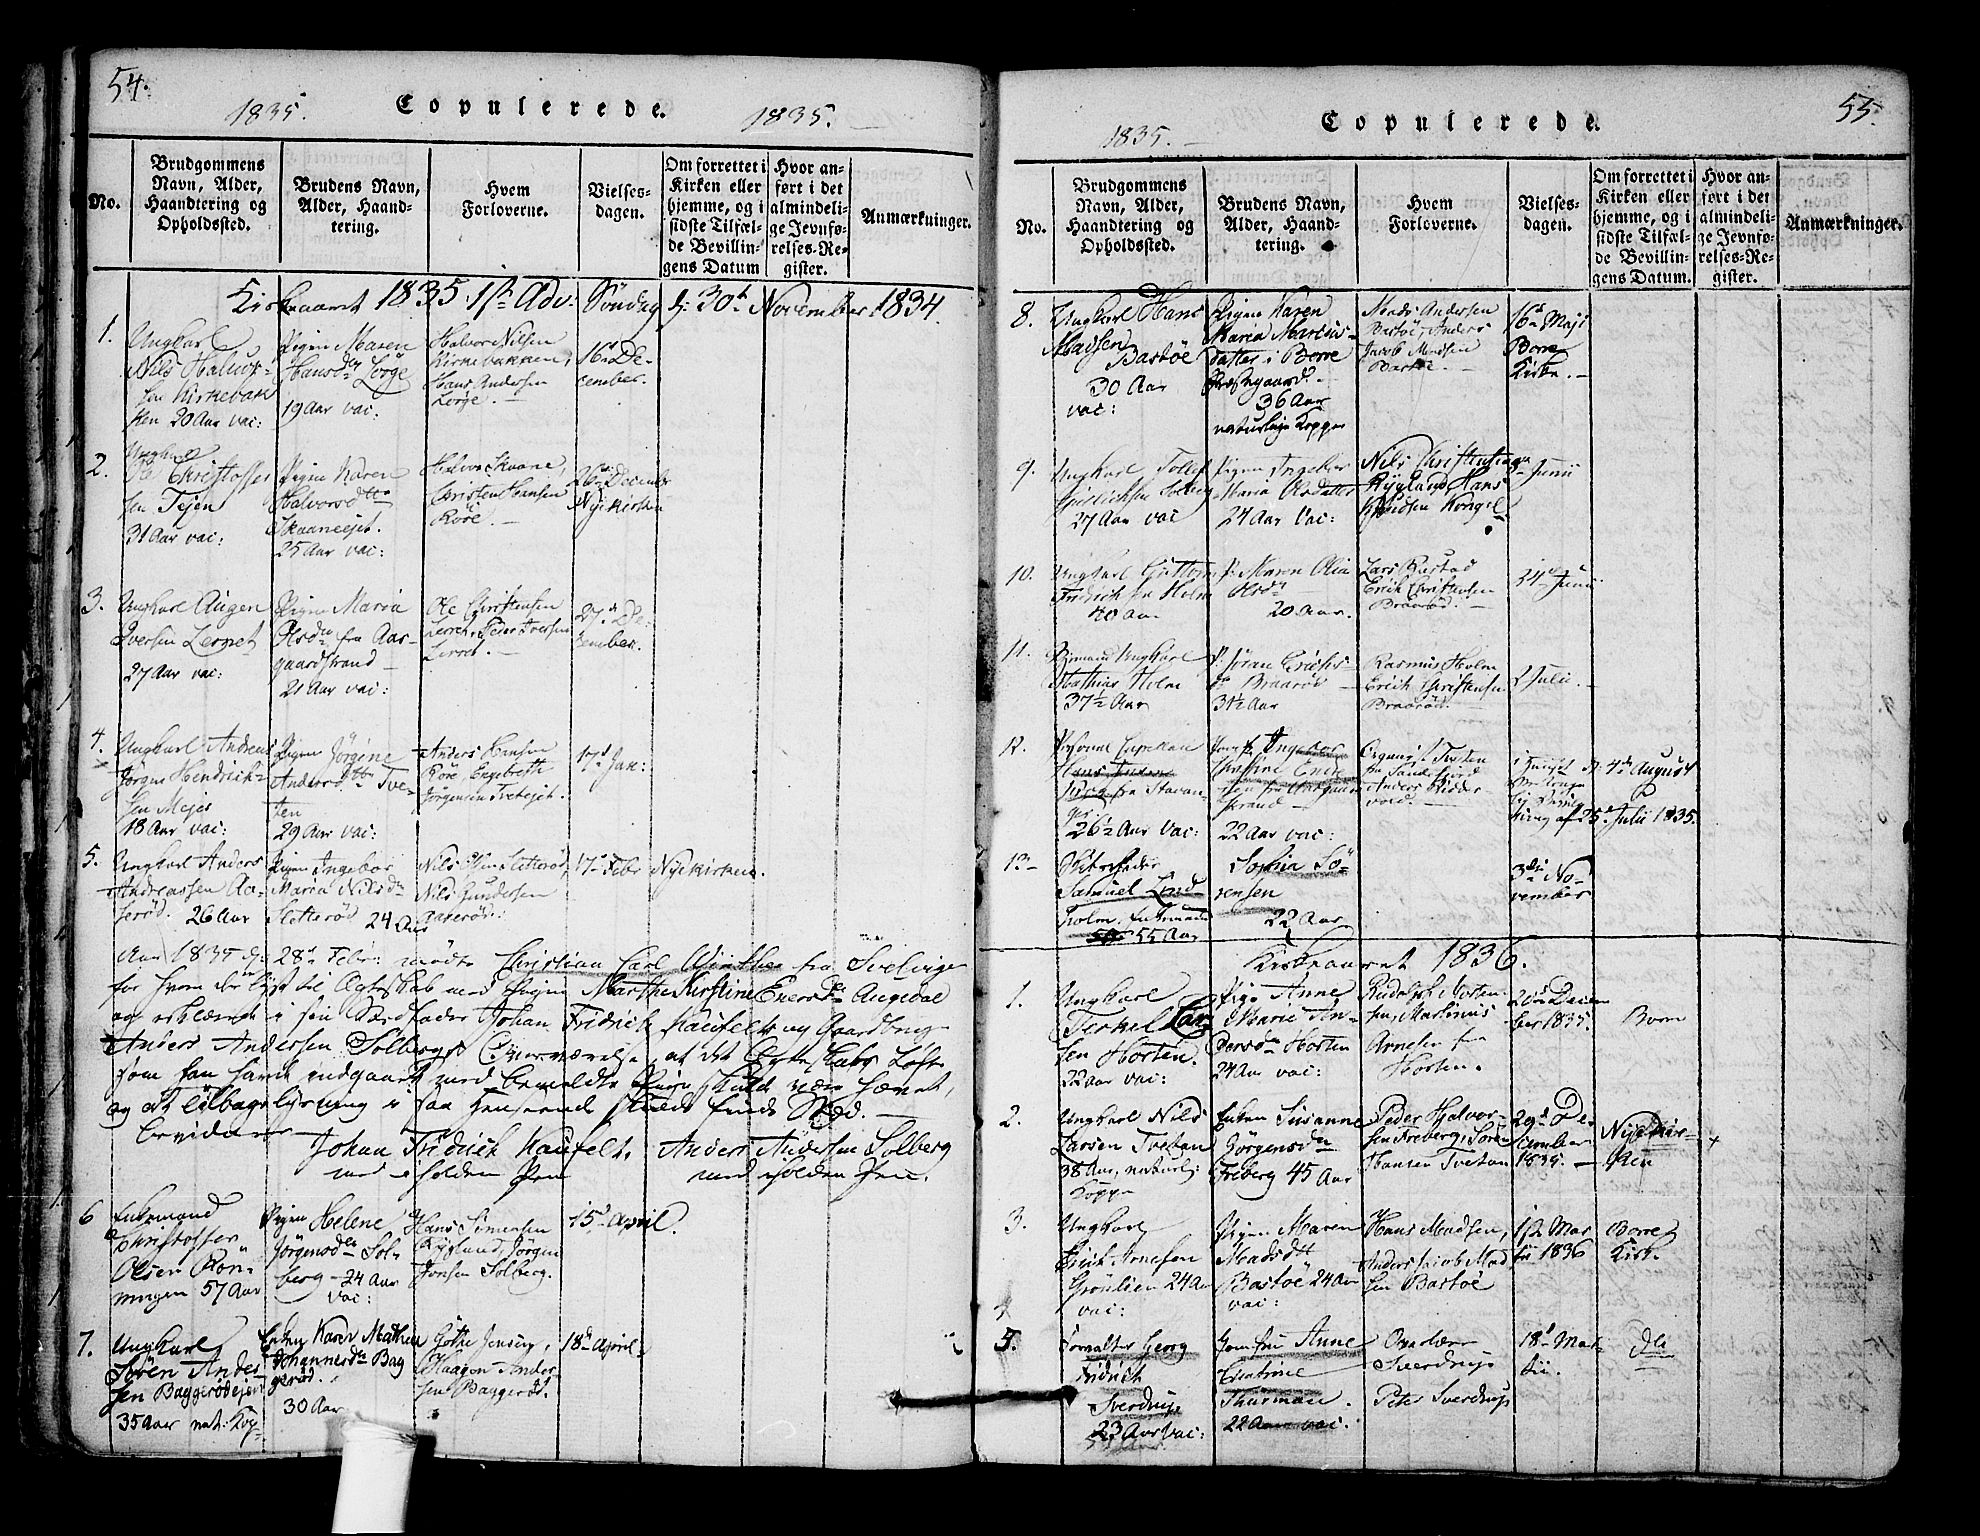 54.
1835.
Copulerede.
1835.
No.
Brudgommens
Navn, Alder,
Haandtering og
Opholdssted.
Brudens Navn,
Alder, Haand-
tering.
Hvem
Forloverne.
Vielses-
dagen.
Om forrettet i
Kirken eller
hjemme, og i
sidste Tilfæl-
de Bevillin-
gens Datum
Hvor an-
ført i det
almindeli-
ge Jevnfø-
relses-Re-
gister.
Anmærkninger.
Kirkeaaret 1835. 1ste Adv: Søndag d: 30t November 1834.
1.
Ungkarl
Nils Halvor-
sen Kirkebak
ken 20 Aar vac:
Pigen Maren
Hansdr Lørge
19 Aar vac:
Halvor Nilsen
Kirkebakken,
Hans Andersen
Lørge. –
16de De-
cember.
2.
Ungkarl
Ole Christoffer
sen Tejen
31 Aar vac:
Pigen Karen
Halvorsdtr
Skaaneejet.
25 Aar vac:
Halvor Skaane,
Christen Hansen
Røre. –
26de December
Nykirken
3.
Ungkarl Augen
Iversen Lerret
27 Aar vac:
Pigen Maria
Olsdr fra Aas-
gaardstrand –
21 Aar vac:
Ole Christensen
Lerret, Peder Iversen
Lerret. –
27de De-
cember.
4.
Ungkarl Andreas
Jørgen Hendrich-
sen Mejer
18 Aar vac:
Pigen Jørgine
Andersdtr Tve-
ten
29 Aar vac:
Anders Hansen
Røre, Engebreth
Jørgensen Tvetejet.
17d Jan:
5.
Ungkarl Anders
Andreassen Aa-
serød. 26 Aar
Pigen Ingebor
Maria Nilsdr
Sletterød 24 Aar
Nils Sletterød,
Nils Gundersen
Aaserød.
17de Febr
Nykirken.
Aar 1835 d: 28de Febr: mødte Christian Carl Winther fra Svelvigen
for hvem der er lyst til Ægteskab med Pigen Marthe Kirstine Enersdr Augedal
og erklærede i sin Stedfader Johan Fridrich Kaufelts og Gaardbruger
Anders Andersen Solbergs Overværelse, at det Ægteskabs Løfte
som han havde indgaaet med bemeldte Pige skulde være hævet,
og at tilbage lysning i saa Henseende skulde finde Sted. –
bevidner –
Johan Fridrich Kaufelt. Anders Andersen Solberg
med iholden Pen med iholden Pen.
6
Enkemand
Christoffer
Olsen Røn-
ningen 57 Aar
Pigen Helene
Jørgensdr Sol-
berg – 24 Aar
vac:
Hans Simensen
Rygland, Jørgen
Jonsen Solberg.
15d April.
7.
Ungkarl
Søren Ander-
sen Baggerødejet
35 Aar nat: Kop-
Enken Karen Mathea
Johannesdr Bag
gerød.
30 Aar
Gothe Jensen,
Haagen Ander-
sen Baggerød.
18d April
55.
1835. –
Copulerede.
No.
Brudgommens
Navn, Alder,
Haandtering og
Opholdssted.
Brudens Navn,
Alder, Haand-
tering.
Hvem
Forloverne.
Vielses-
dagen.
Om forrettet i
Kirken eller
hjemme, og i
sidste Tilfæl-
de Bevillin-
gens Datum.
Hvor an-
ført i det
almindeli-
ge Jevnfø-
relses-Re-
gister.
Anmærkninger.
8.
Ungkarl Hans
Madsen
Bastøe
30 Aar
vac:
Pigen Karen
Maria Martins-
datter i Borre
Præstegaard. –
36 Aar
naturlige Kopper
Mads Andersen
Bastøe, Anders
Jacob Madsen
Bastøe. –
16d Maji
Borre
Kirke. –
9.
Ungkarl Tollef
Solberg
27 Aar vac
Pigen Ingebor
Maria Olsdatter
24 Aar vac:
Nils Christensen
Rygland, Hans
Knudsen Kongel
Junii
10.
Ungkarl Guttorm
Fridrich fra Holm
40 Aar
P. Maren Olia
Olsdr
20 Aar.
Lars Rustad
Erich Christensen
Braarød. –
Junii
11.
Ungkarl
Mathias Holm
37½ Aar
P. Søran Erichs-
dr Braarød –
31½ Aar
Rasmus Holm
Erich Christensen
Braarød –
2 Julii. –
12.
Hans
fra Stavan-
ger
26½ Aar vac:
Ingebor
22 Aar vac:
Organist
fra
Anders
4de August
af 25de Julii 1835.
13 –
Samuel Lind-
holm, Enkemand
55 Aar
Sophia Sø-
rensen
22 Aar
3die No-
vember
Kirkeaaret 1836.
1.
Ungkarl
Terkel Lar
sen Horten.
22 Aar vac:
Pige Anne
Marie An-
dersdr Horten
24 Aar vac:
Rudolph Horten-
sen, Martinus
Arnesen fra
Horten.
20de Decem
ber 1835.
Borre
2.
Ungkarl Nils
Larsen Tvetan
38 Aar, naturl:
Kopper
Enken Susanne
Jørgensdr
Freberg 45 Aar
Peder Halvor-
sen Freberg, Søren
Hansen Tvetan
29d De-
cember
1835. –
Nykir-
ken
+
3.
Ungkarl
Erich Arnesen
Grønlien 24 Aar
vac:
Pigen Maren
Madsdtr
Bastøe 24 Aar
vac:
Hans Madsen,
Anders Jacob Mad
sen Bastøe
1ste Mar
tii 1836
Borre
Kirke.
5.
Forvalter Georg
Fridrich
Sverdrup
23 Aar vac:
Jomfru Anne
Cathrine
Thurman.
22 Aar vac.
Overlærer
Sverdrup
Peter Sverdrup
18d Mar-
tii.
do